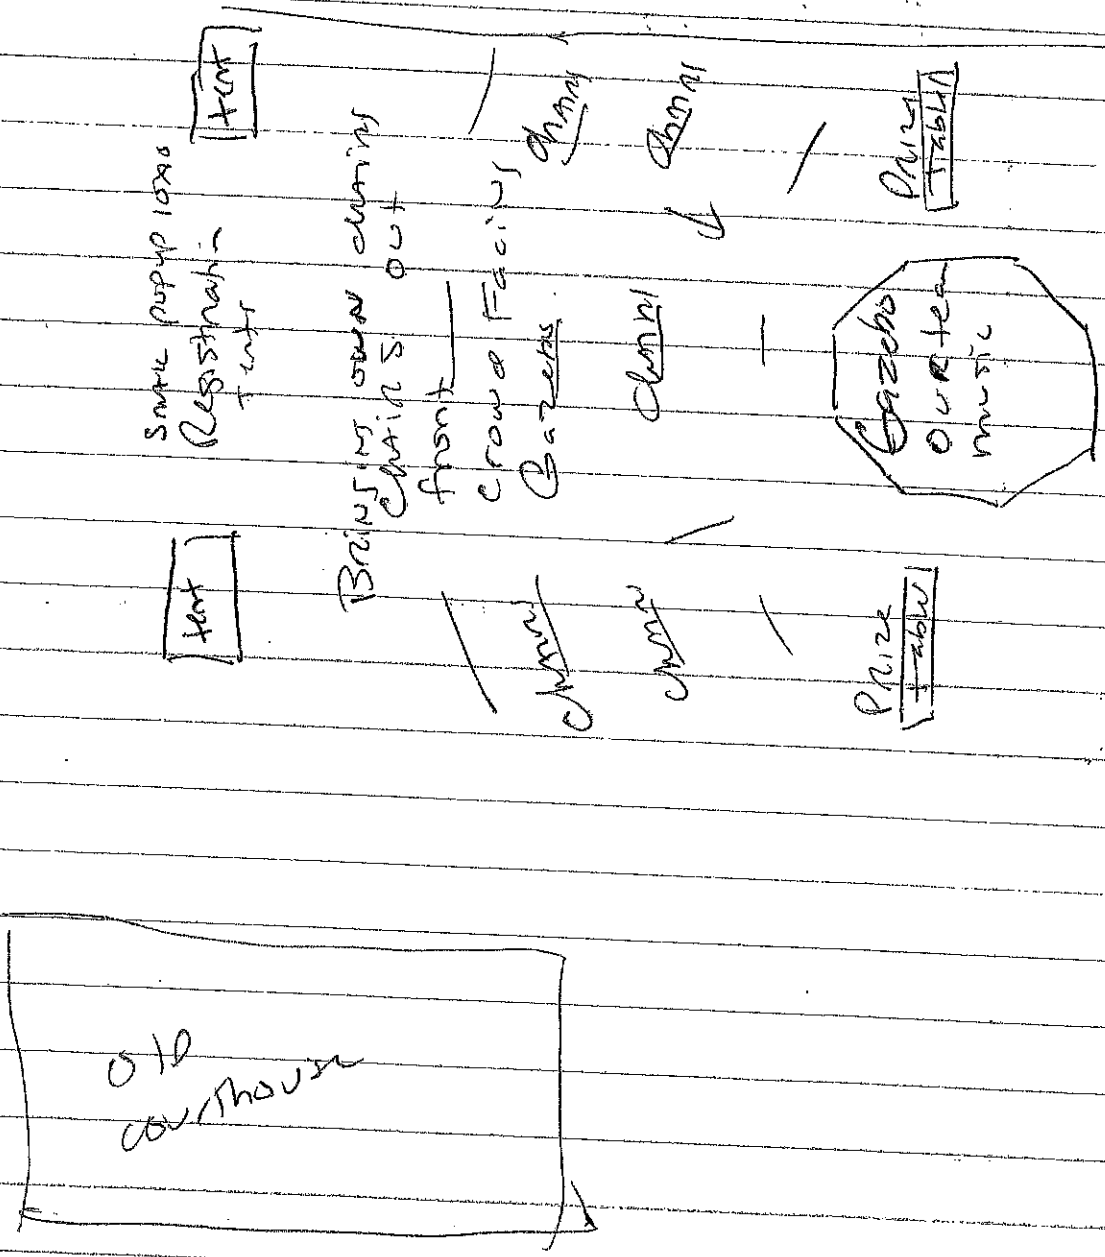 tent
small popup 10x10
Registration
tents
tent
Bring own chairs
chairs out
front
crowd Facing
Gazebo
chairs
chairs
chairs
chairs
chairs
Prize
Table
Gazebo
our team
music
Prize
table
old
courthouse